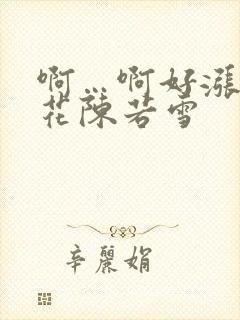 啊…啊好漲
花陳若雪
辛麗娟